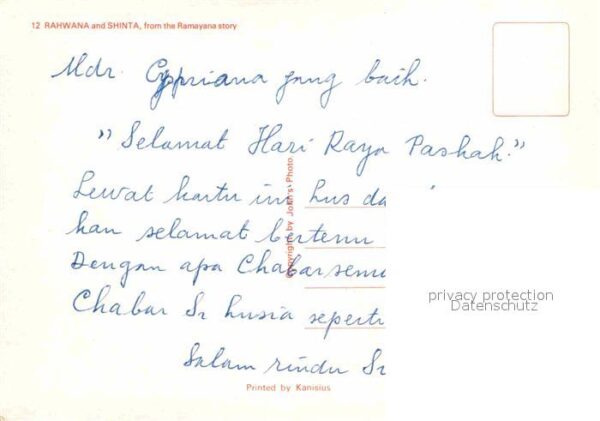 12 RAHWANA and SHINTA, from the Ramayana story
Mdr. Cypriana jang baik.
"Selamat Hari Raya Paskah."
Lewat kartu ini
kan selamat bertemu
Dengan apa Chabar semu
Chabar Sr Lusia seperti
Salam rindu Sr
Copyright by John's Photo
Printed by Kanisius
privacy protection
Datenschutz